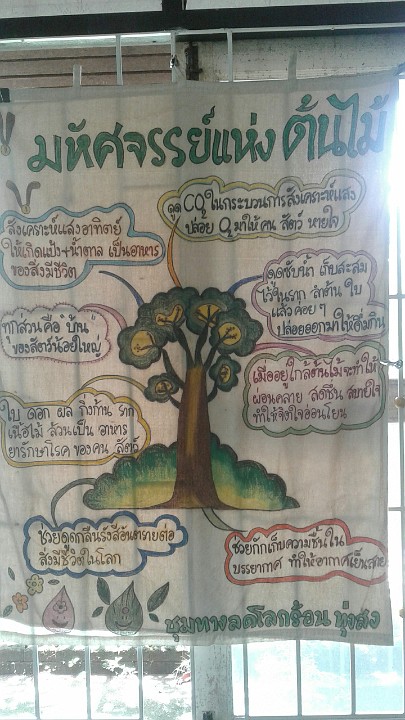 มหัศจรรย์แห่ง ต้นไม้
ดูด CO2ในกระบวนการสังเคราะห์แสง
ปล่อย O2มาให้ คน สัตว์ หายใจ
สังเคราะห์แสงอาทิตย์
ให้เกิดแป้ง+น้ำตาล เป็นอาหาร
ของสิ่งมีชีวิต
ดูดซับน้ำ เก็บสะสม
ไว้ในราก ลำต้น ใบ
แล้วค่อย ๆ
ปล่อยออกมาให้ดื่มกิน
ทุกส่วน คือ "บ้าน"
ของสัตว์น้อยใหญ่
เมื่ออยู่ใกล้ต้นไม้จะทำให้
ผ่อนคลาย สดชื่น สบายใจ
ทำให้จิตใจอ่อนโยน
ใบ ดอก ผล กิ่งก้าน ราก
เนื้อไม้ ล้วนเป็น อาหาร
ยารักษาโรค ของคน สัตว์
ช่วยดูดกลืนรังสีอันตรายต่อ
สิ่งมีชีวิตในโลก
ช่วยกักเก็บความชื้นใน
บรรยากาศ ทำให้อากาศเย็นสบาย
ชุมทางลดโลกร้อน ทุ่งสง